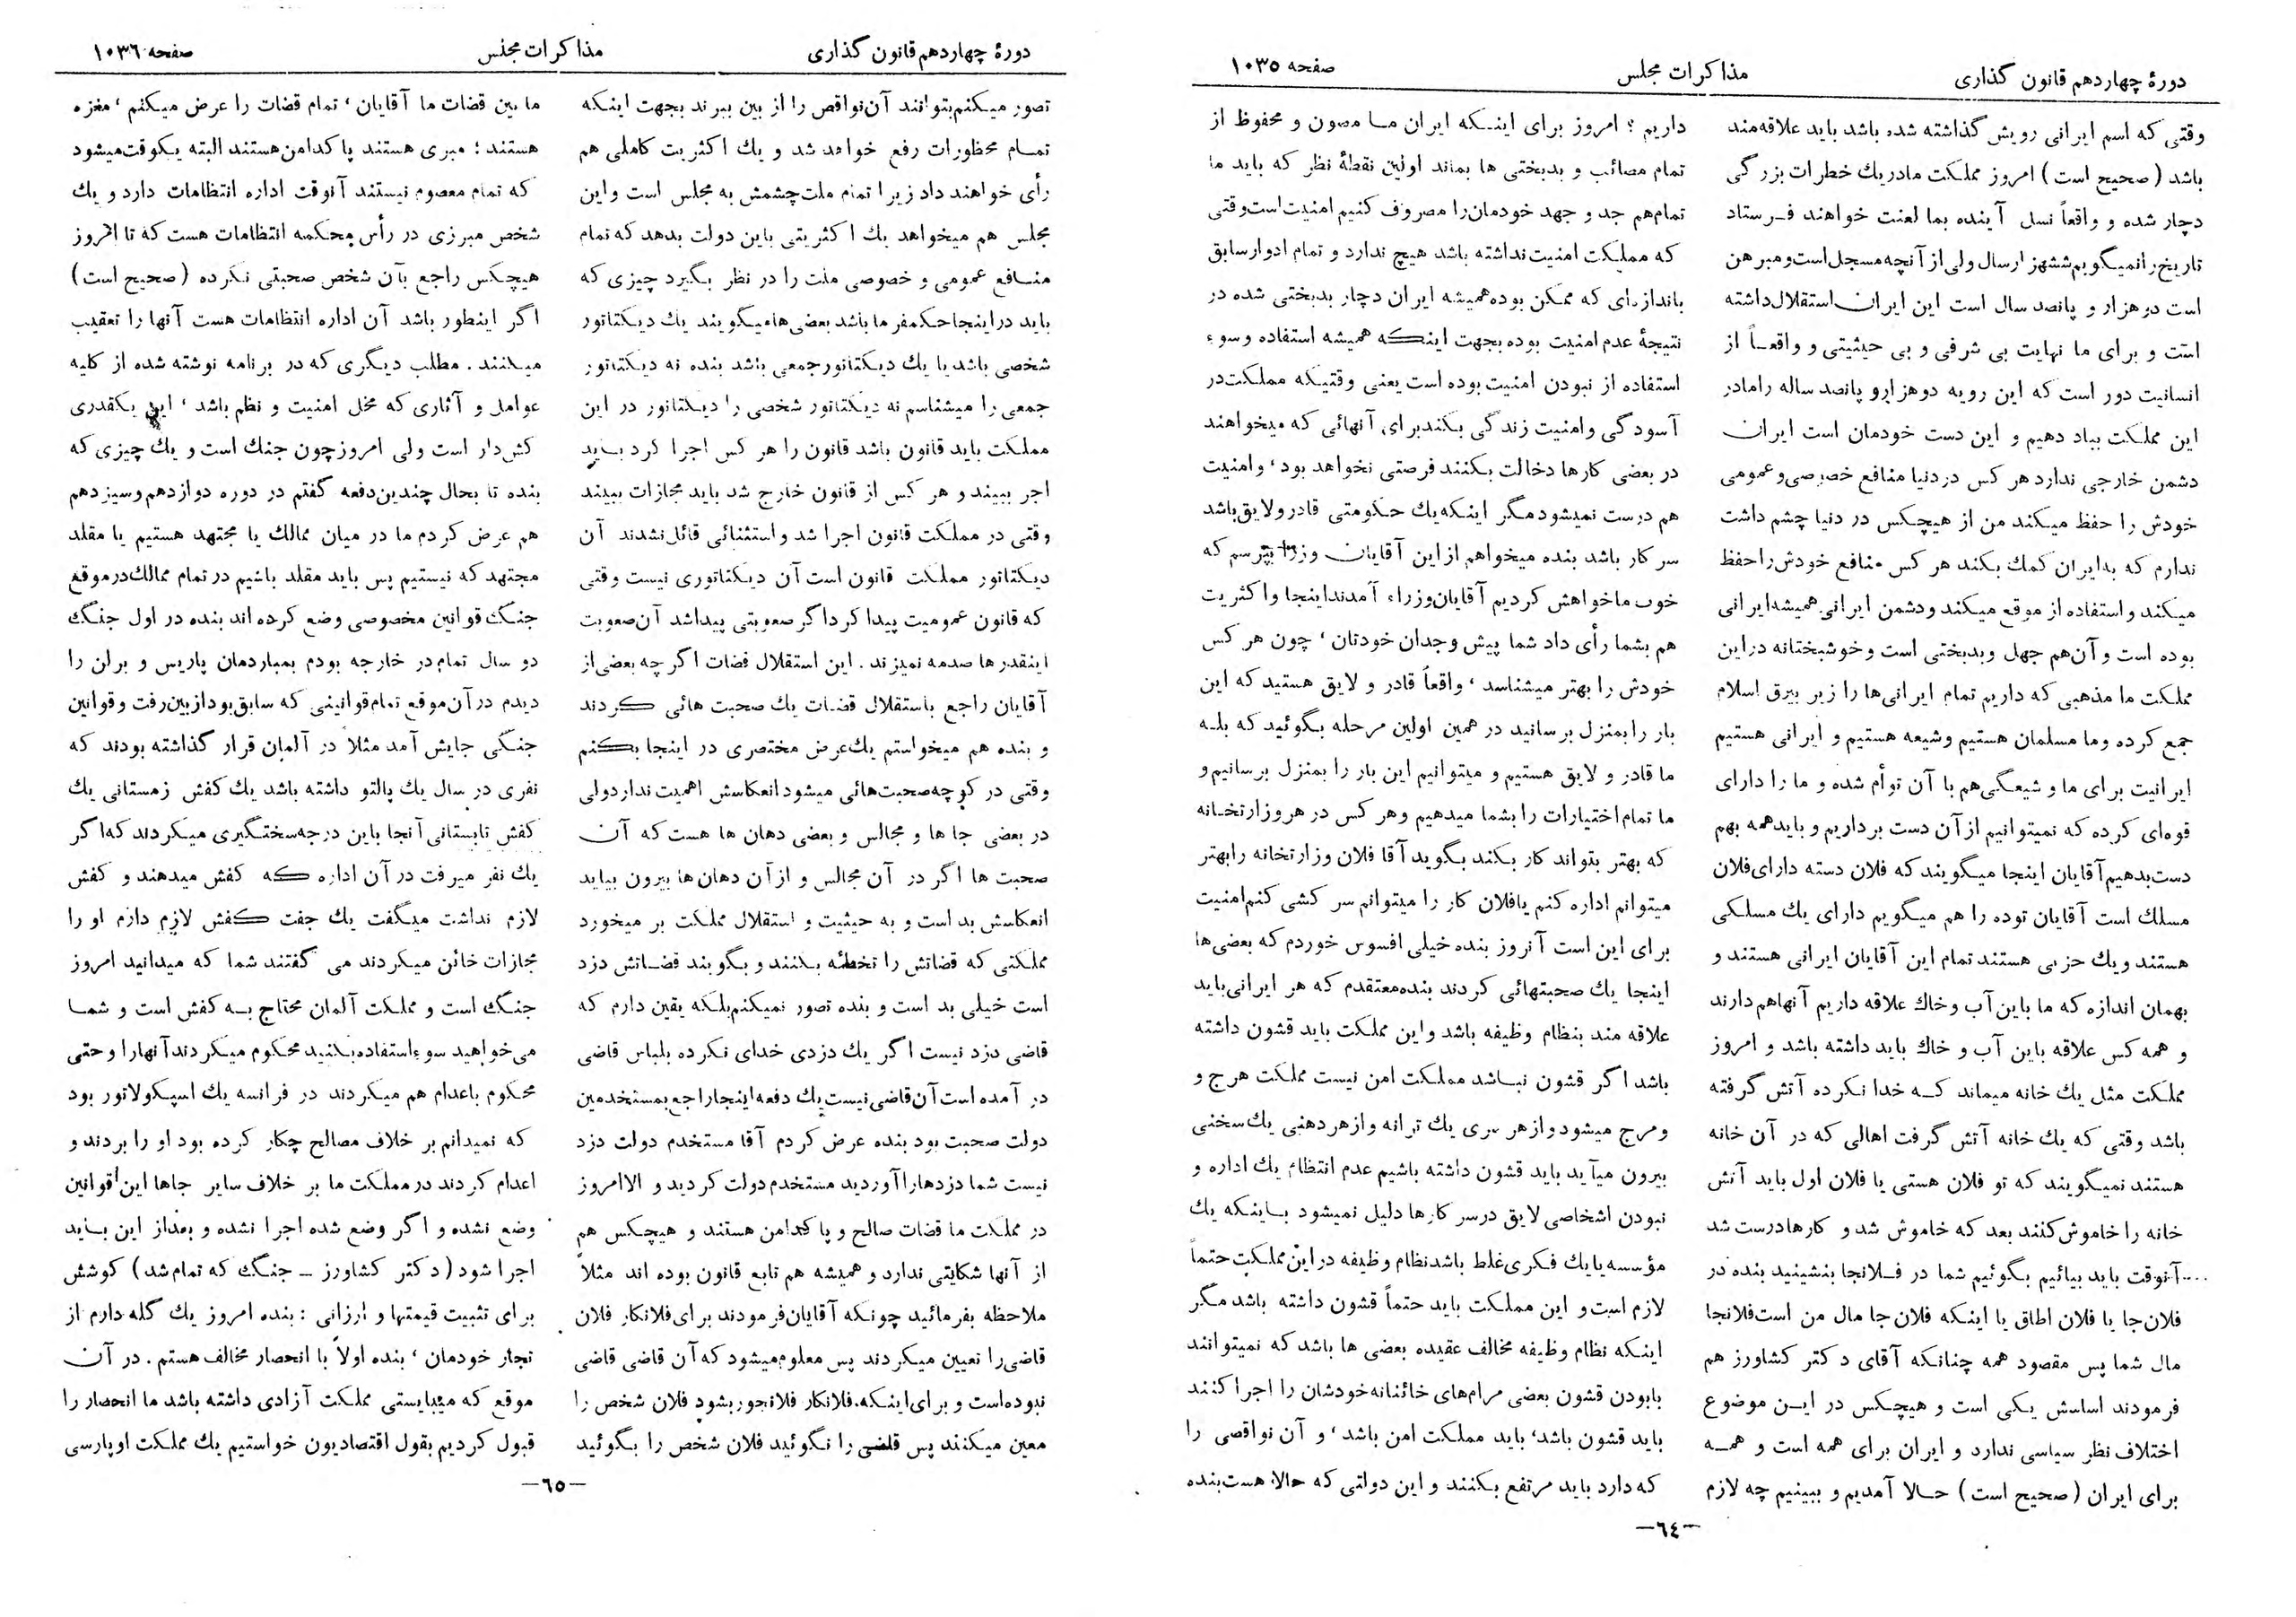 دورهٔ چهاردهم قانون گذاری
مذاکرات مجلس
صفحه ۱۰۳۵
وقتی که اسم ایرانی رویش گذاشته شده باشد باید علاقه‌مند
باشد (صحیح است) امروز مملکت مادریك خطرات بزرگی
دچار شده و واقعاً نسل آینده بما لعنت خواهند فرستاد
تاریخ را نمیگویم ششهزار سال ولی از آنچه مسجل است و مبرهن
است دو هزار و پانصد سال است این ایران استقلال داشته
است و برای ما نهایت بی شرفی و بی حیثیتی و واقعاً از
انسانیت دور است که این رویه دوهزار و پانصد ساله را مادر
این مملکت بباد دهیم و این دست خودمان است ایران
دشمن خارجی ندارد هر کس در دنیا منافع خصوصی و عمومی
خودش را حفظ میکند من از هیچکس در دنیا چشم داشت
ندارم که به ایران کمك بکند هر کس منافع خودش را حفظ
میکند و استفاده از موقع میکند و دشمن ایرانی همیشه ایرانی
بوده است و آن هم جهل و بدبختی است و خوشبختانه در این
مملکت ما مذهبی که داریم تمام ایرانی‌ها را زیر بیرق اسلام
جمع کرده و ما مسلمان هستیم و شیعه هستیم و ایرانی هستیم
ایرانیت برای ما و شیعگی هم با آن توأم شده و ما را دارای
قوه‌ای کرده که نمیتوانیم از آن دست برداریم و باید همه بهم
دست بدهیم آقایان اینجا میگویند که فلان دسته دارای فلان
مسلك است آقایان توده را هم میگویم دارای یك مسلکی
هستند و یك حزبی هستند تمام این آقایان ایرانی هستند و
بهمان اندازه که ما باین آب و خاك علاقه داریم آنها هم دارند
و همه کس علاقه باین آب و خاك باید داشته باشد و امروز
مملکت مثل یك خانه میماند که خدا نکرده آتش گرفته
باشد وقتی که یك خانه آتش گرفت اهالی که در آن خانه
هستند نمیگویند که تو فلان هستی یا فلان اول باید آتش
خانه را خاموش کنند بعد که خاموش شد و کارها درست شد
آنوقت باید بیائیم بگوئیم شما در فلانجا بنشینید بنده در
فلان جا یا فلان اطاق یا اینکه فلان جا مال من است فلانجا
مال شما پس مقصود همه چنانکه آقای دکتر کشاورز هم
فرمودند اساسش یکی است و هیچکس در این موضوع
اختلاف نظر سیاسی ندارد و ایران برای همه است و همه
برای ایران (صحیح است) حالا آمدیم و ببینیم چه لازم
داریم ؟ امروز برای اینکه ایران ما مصون و محفوظ از
تمام مصائب و بدبختی ها بماند اولین نقطهٔ نظر که باید ما
تمام هم جد و جهد خودمان را مصروف کنیم امنیت است وقتی
که مملکت امنیت نداشته باشد هیچ ندارد و تمام ادوار سابق
باندازه‌ای که ممکن بوده همیشه ایران دچار بدبختی شده در
نتیجهٔ عدم امنیت بوده بجهت اینکه همیشه استفاده و سوء
استفاده از نبودن امنیت بوده است یعنی وقتیکه مملکت در
آسودگی و امنیت زندگی بکند برای آنهائی که میخواهند
در بعضی کارها دخالت بکنند فرصتی نخواهد بود، و امنیت
هم درست نمیشود مگر اینکه یك حکومتی قادر و لایق باشد
سر کار باشد بنده میخواهم از این آقایان وزراء بپرسم که
خوب ما خواهش کردیم آقایان وزراء آمدند اینجا و اکثریت
هم بشما رأی داد شما پیش وجدان خودتان، چون هر کس
خودش را بهتر میشناسد، واقعاً قادر و لایق هستید که این
بار را بمنزل برسانید در همین اولین مرحله بگوئید که بله
ما قادر و لایق هستیم و میتوانیم این بار را بمنزل برسانیم و
ما تمام اختیارات را بشما میدهیم و هر کس در هر وزارتخانه
که بهتر بتواند کار بکند بگوید آقا فلان وزارتخانه را بهتر
میتوانم اداره کنم یا فلان کار را میتوانم سر کشی کنم امنیت
برای این است آنروز بنده خیلی افسوس خوردم که بعضی‌ها
اینجا یك صحبتهائی کردند بنده معتقدم که هر ایرانی باید
علاقه مند بنظام وظیفه باشد و این مملکت باید قشون داشته
باشد اگر قشون نباشد مملکت امن نیست مملکت هرج و
و مرج میشود و از هر سری یك ترانه و از هر دهنی یك سخنی
بیرون میآید باید قشون داشته باشیم عدم انتظام یك اداره و
نبودن اشخاصی لایق در سر کارها دلیل نمیشود باینکه یك
مؤسسه یا یك فکری غلط باشد نظام وظیفه در این مملکت حتماً
لازم است و این مملکت باید حتماً قشون داشته باشد مگر
اینکه نظام وظیفه مخالف عقیده بعضی ها باشد که نمیتوانند
با بودن قشون بعضی مرام‌های خائنانه خودشان را اجرا کنند
باید قشون باشد، باید مملکت امن باشد، و آن نواقصی را
که دارد باید مرتفع بکنند و این دولتی که حالا هست بنده
—٦٤—
دورهٔ چهاردهم قانون گذاری
مذاکرات مجلس
صفحه ۱۰۳٦
تصور میکنم بتوانند آن نواقص را از بین ببرند بجهت اینکه
تمام محظورات رفع خواهد شد و یك اکثریت کاملی هم
رأی خواهند داد زیرا تمام ملت چشمش به مجلس است و این
مجلس هم میخواهد یك اکثریتی باین دولت بدهد که تمام
منافع عمومی و خصوصی ملت را در نظر بگیرد چیزی که
باید در اینجا حکمفرما باشد بعضی‌ها میگویند یك دیکتاتور
شخصی باشد یا یك دیکتاتور جمعی باشد بنده نه دیکتاتور
جمعی را میشناسم نه دیکتاتور شخصی را دیکتاتور در این
مملکت باید قانون باشد قانون را هر کس اجرا کرد باید
اجر ببیند و هر کس از قانون خارج شد باید مجازات ببیند
وقتی در مملکت قانون اجرا شد و استثنائی قائل نشدند آن
دیکتاتور مملکت قانون است آن دیکتاتوری نیست وقتی
که قانون عمومیت پیدا کرد اگر صعوبتی پیدا شد آن صعوبت
اینقدرها صدمه نمیزند . این استقلال قضات اگر چه بعضی از
آقایان راجع باستقلال قضات یك صحبت هائی کردند
و بنده هم میخواستم یك عرض مختصری در اینجا بکنم
وقتی در کوچه صحبت‌هائی میشود انعکاسش اهمیت ندارد ولی
در بعضی جا ها و مجالس و بعضی دهان ها هست که آن
صحبت ها اگر در آن مجالس و از آن دهان‌ها بیرون بیاید
انعکاسش بد است و به حیثیت و استقلال مملکت بر میخورد
مملکتی که قضاتش را تخطئه بکنند و بگویند قضاتش دزد
است خیلی بد است و بنده تصور نمیکنم بلکه یقین دارم که
قاضی دزد نیست اگر یك دزدی خدای نکرده بلباس قاضی
در آمده است آن قاضی نیست یك دفعه اینجا راجع بمستخدمین
دولت صحبت بود بنده عرض کردم آقا مستخدم دولت دزد
نیست شما دزدها را آوردید مستخدم دولت کردید و الا امروز
در مملکت ما قضات صالح و پاکدامن هستند و هیچکس هم
از آنها شکایتی ندارد و همیشه هم تابع قانون بوده اند مثلاً
ملاحظه بفرمائید چونکه آقایان فرمودند برای فلانکار فلان
قاضی را تعیین میکردند پس معلوم میشود که آن قاضی قاضی
نبوده است و برای اینکه فلانکار فلانجور بشود فلان شخص را
معین میکنند پس قاضی را نگوئید فلان شخص را بگوئید
ما بین قضات ما آقایان، تمام قضات را عرض میکنم، منزه
هستند؛ مبری هستند پاکدامن هستند البته یکوقت میشود
که تمام معصوم نیستند آنوقت اداره انتظامات دارد و یك
شخص مبرزی در رأس محکمه انتظامات هست که تا امروز
هیچکس راجع بآن شخص صحبتی نکرده (صحیح است)
اگر اینطور باشد آن اداره انتظامات هست آنها را تعقیب
میکنند . مطلب دیگری که در برنامه نوشته شده از کلیه
عوامل و آثاری که مخل امنیت و نظم باشد، این یکقدری
کش‌دار است ولی امروز چون جنك است و یك چیزی که
بنده تا بحال چندین دفعه گفتم در دوره دوازدهم و سیزدهم
هم عرض کردم ما در میان ممالك یا مجتهد هستیم یا مقلد
مجتهد که نیستیم پس باید مقلد باشیم در تمام ممالك در موقع
جنگ قوانین مخصوصی وضع کرده اند بنده در اول جنگ
دو سال تمام در خارجه بودم بمباردمان پاریس و برلن را
دیدم در آن موقع تمام قوانینی که سابق بود از بین رفت و قوانین
جنگی جایش آمد مثلاً در آلمان قرار گذاشته بودند که
نفری در سال یك پالتو داشته باشد یك کفش زمستانی یك
کفش تابستانی آنجا باین درجه سختگیری میکردند که اگر
یك نفر میرفت در آن اداره که کفش میدهند و کفش
لازم نداشت میگفت یك جفت کفش لازم دارم او را
مجازات خائن میکردند می گفتند شما که میدانید امروز
جنگ است و مملکت آلمان محتاج به کفش است و شما
می‌خواهید سوء استفاده بکنید محکوم میکردند آنها را و حتی
محکوم باعدام هم میکردند در فرانسه یك اسپکولاتور بود
که نمیدانم بر خلاف مصالح چکار کرده بود او را بردند و
اعدام کردند در مملکت ما بر خلاف سایر جاها این قوانین
وضع نشده و اگر وضع شده اجرا نشده و بعداز این باید
اجرا شود (دکتر کشاورز – جنگ که تمام شد) کوشش
برای تثبیت قیمتها و ارزانی : بنده امروز یك گله دارم از
تجار خودمان، بنده اولاً با انحصار مخالف هستم . در آن
موقع که میبایستی مملکت آزادی داشته باشد ما انحصار را
قبول کردیم بقول اقتصادیون خواستیم یك مملکت اوپارسی
—٦٥—